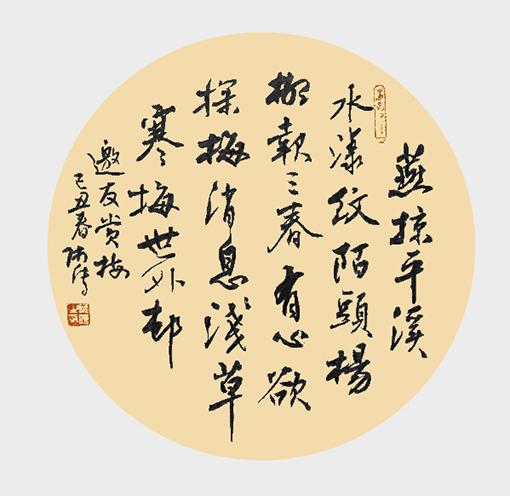 燕掠平溪
水漾紋陌頭楊
柳報三春有心欲
探梅消息淺草
寒梅世外村
邀友赏梅
己丑春